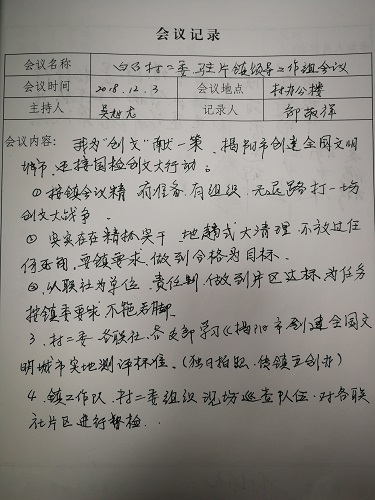 会议记录
会议名称 白石村二委、驻片镇领导工作组会议
会议时间 2018.12.3 会议地点 村办公楼
主持人 吴 龙 记录人 郭敬
会议内容：我为"创文"献一策，揭阳市创建全国文明
城市，迎接国检创文大行动：
①按镇会议精 有准备 有组织 无退路打一场
创文大战争.
② 实实在在精抓实干，地毯式大清理，不放过任
何死角，要镇要求，做到合格为目标.
③以联社为单位，责任制，做到片区达标为任务
按镇委要求不拖后脚.
3、村二委、各联社、各支部学习《揭阳市创建全国文
明城市实地测评标准》（独日拍照、传镇三创办）
4、镇工作队、村二委组织现场巡查队伍，对各联
社片区进行督检..